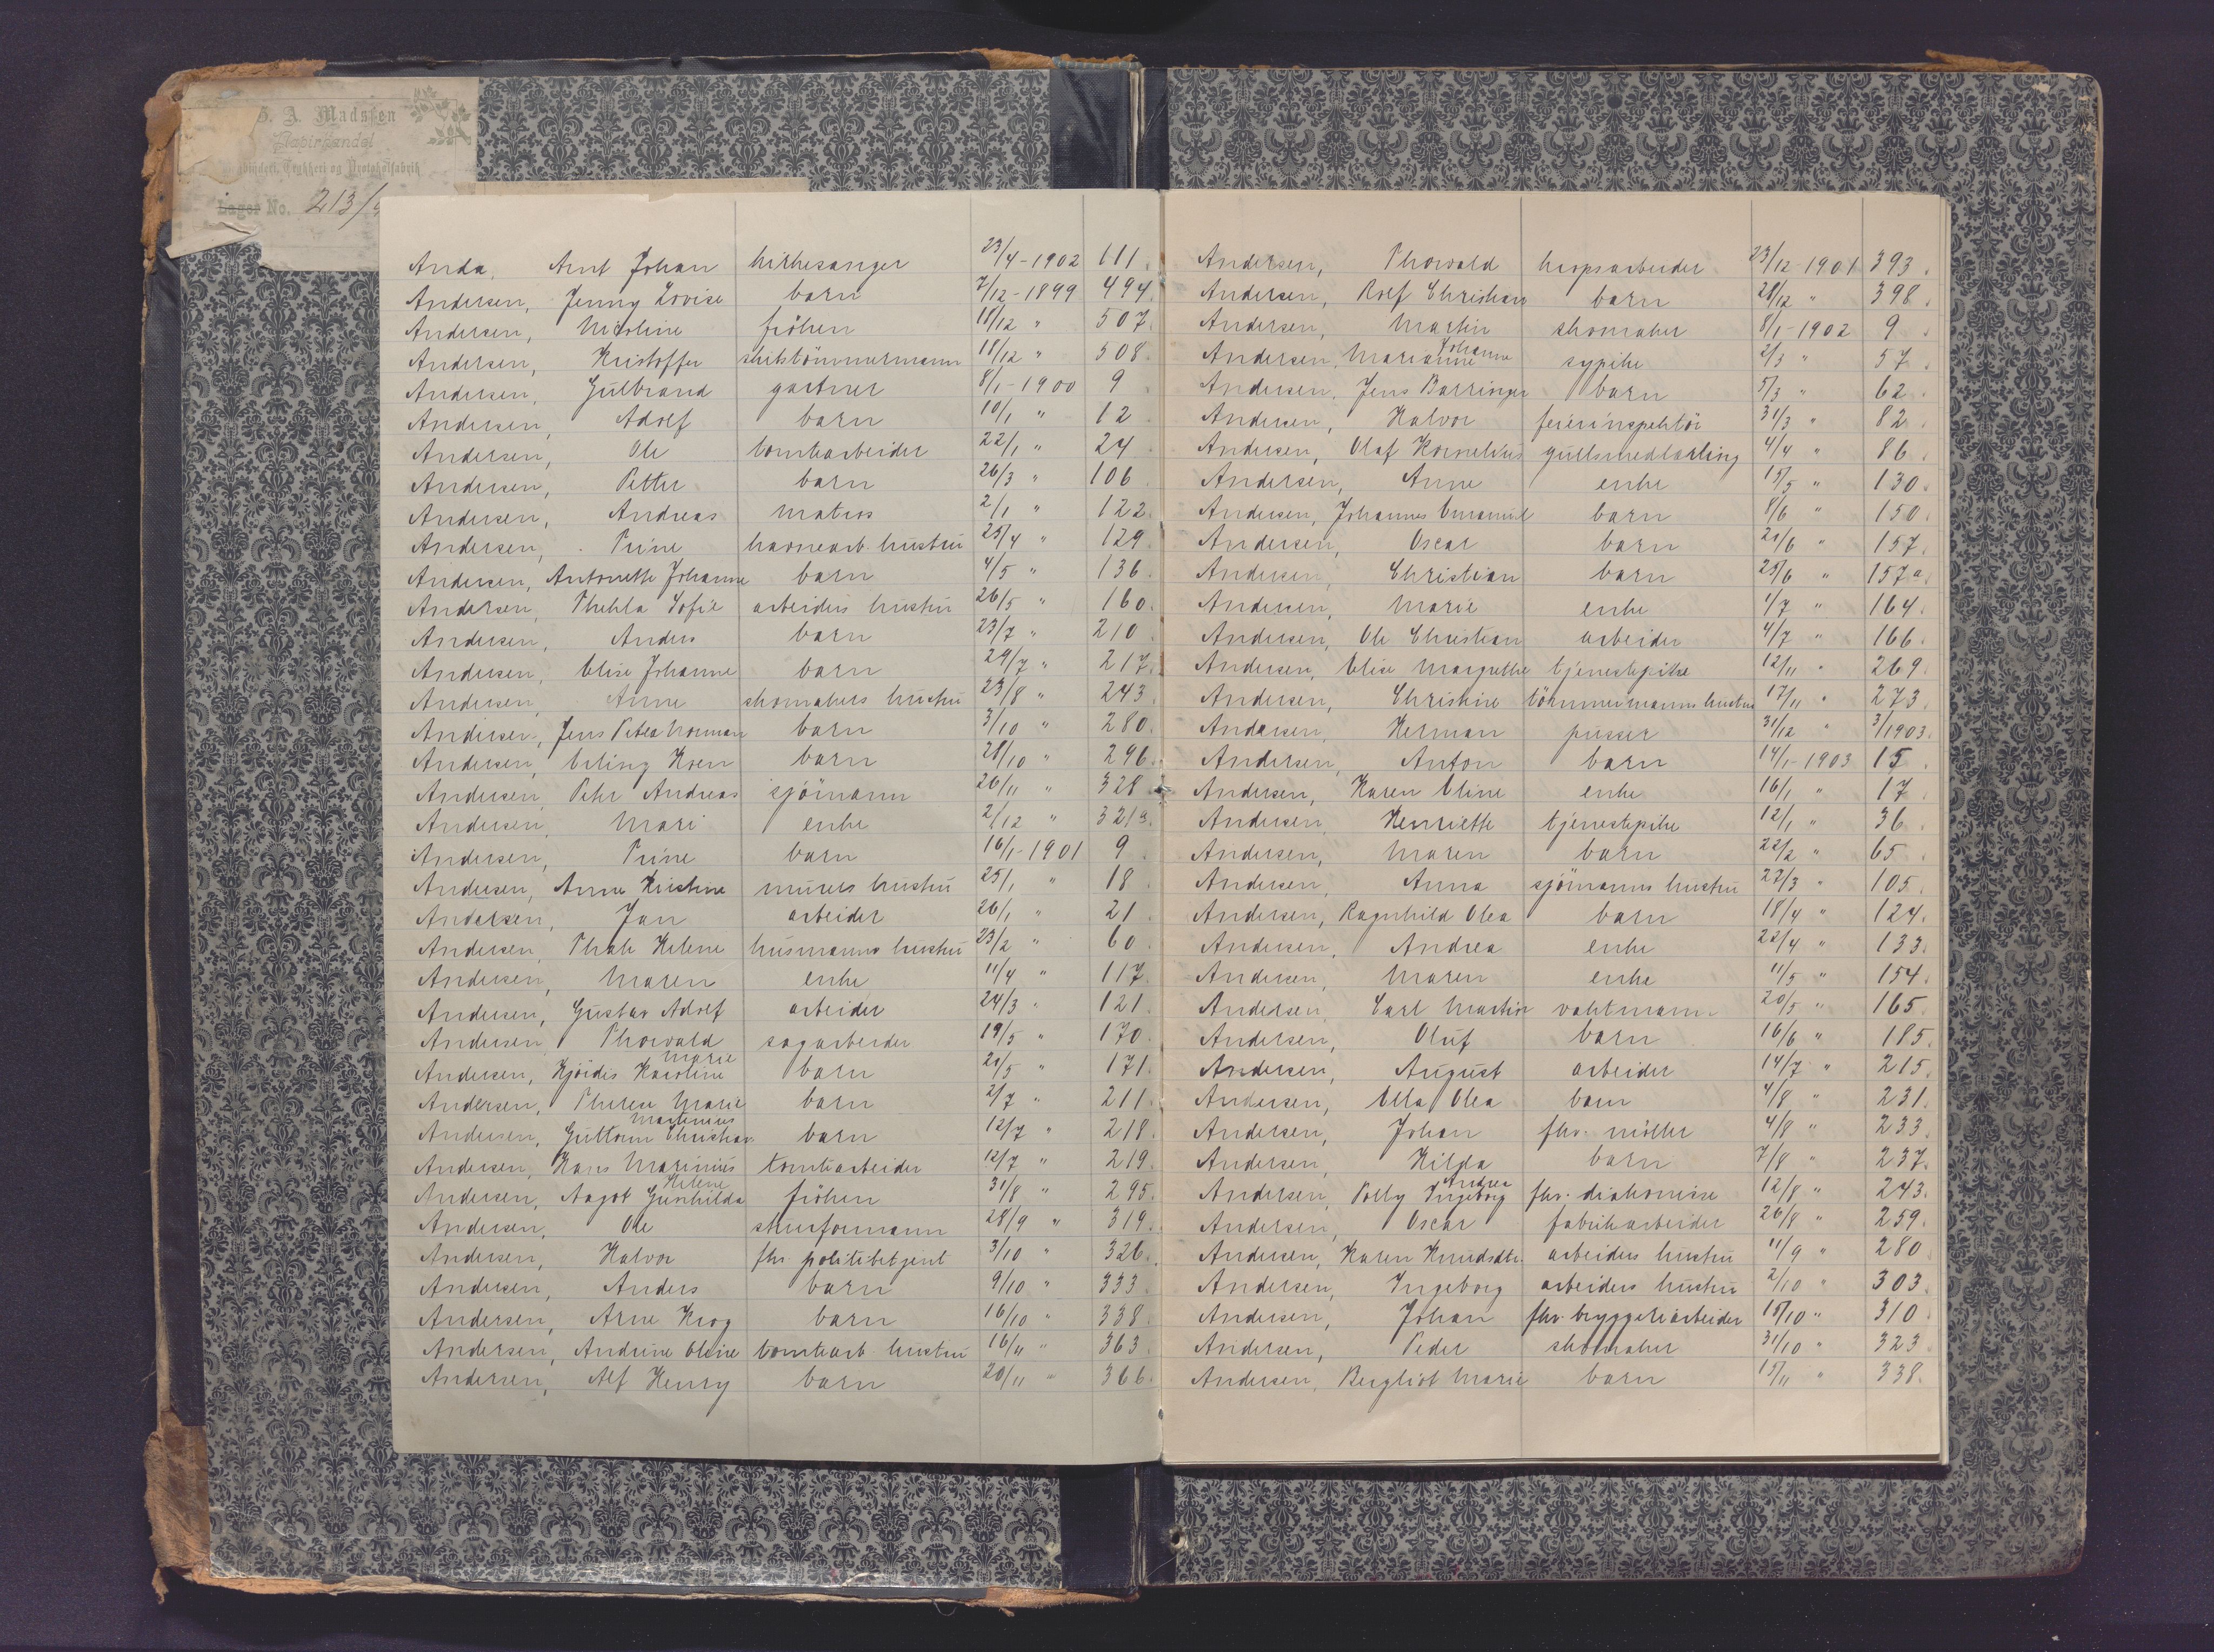 S. A. Madssen
Papirhandel
Bogbinderi, Trykkeri og Protokolfabrik
Lager No. 213/
Anda, Arnt Johan kirkesanger 23/4-1902 111.
Andersen, Jenny Lovise barn 7/12-1899 494.
Andersen, Nicoline fröken 11/12 " 507.
Andersen, Kristoffer skibstömmermann 11/12 " 508.
Andersen, Gulbrand gartner 8/1-1900 9
Andersen, Adolf barn 10/1 " 12
Andersen, Ole tomtearbeider 22/1 " 24
Andersen, Petter barn 26/3 " 106.
Andersen, Andreas matros 2/1 " 122.
Andersen, Trine havnearb. hustru 25/4 " 129.
Andersen, Antonette Johanne barn 4/5 " 136.
Andersen, Thekla Sofie arbeiders hustru 26/5 " 160.
Andersen, Anders barn 23/7 " 210.
Andersen, Elise Johanne barn 29/7 " 217.
Andersen, Anne skomakers hustru 23/8 " 243.
Andersen, Jens Peter Norman barn 3/10 " 280.
Andersen, Erling Koren barn 28/10 " 296.
Andersen, Peter Andreas sjömann 26/11 " 328
Andersen, Mari enke 2/12 " 321a.
Andersen, Trine barn 16/1-1901 9
Andersen, Anne Kristine murers hustru 25/1 " 18.
Andersen, Jan arbeider 26/1 " 21
Andersen, Thale Helene husmanns hustru 23/2 " 60.
Andersen, Maren enke 11/4 " 117.
Andersen, Gustav Adolf arbeider 24/3 " 121.
Andersen, Thorvald sagarbeider 19/5 " 170.
Andersen, Hjördis Karoline Marie barn 21/5 " 171.
Andersen, Therese Marie barn 2/7 " 211.
Andersen, Guttorm Christian Martinius barn 12/7 " 218.
Andersen, Hans Marinius tomtearbeider 12/7 " 219.
Andersen, Aagot Gunhilda Helene fröken 31/8 " 295.
Andersen, Ole stuerformann 28/9 " 319.
Andersen, Halvor fhv. politibetjent 3/10 " 326.
Andersen, Anders barn 9/10 " 333.
Andersen, Arne Krog barn 16/10 " 338.
Andersen, Andrine Oleine tomtearb. hustru 16/11 " 363.
Andersen, Alf Henry barn 20/11 " 366.
Andersen, Thorvald kropsarbeider 23/12-1901 393.
Andersen, Rolf Christian barn 28/12 " 398.
Andersen, Martin skomaker 8/1-1902 9
Andersen, Marianne Johanne sypike 2/3 " 57.
Andersen, Jens Barringer barn 5/3 " 62.
Andersen, Halvor feierinspektör 31/3 " 82.
Andersen, Olaf Kornelius gullsmedlærling 4/4 " 86.
Andersen, Anne enke 15/5 " 130.
Andersen, Johannes Emanuel barn 8/6 " 150.
Andersen, Oscar barn 21/6 " 157.
Andersen, Christian barn 25/6 " 157a.
Andersen, Marie enke 1/7 " 164.
Andersen, Ole Christian arbeider 4/7 " 166.
Andersen, Elise Margrethe tjenestepike 12/11 " 269.
Andersen, Christine tömmermanns hustru 17/11 " 273.
Andersen, Herman pusser 31/12 " 3/1903.
Andersen, Anton barn 14/1-1903 15.
Andersen, Karen Eline enke 16/1 " 17.
Andersen, Henriette tjenestepike 12/1 " 36.
Andersen, Maren barn 22/2 " 65.
Andersen, Anna sjömanns hustru 22/3 " 105.
Andersen, Ragnhild Olea barn 18/4 " 124.
Andersen, Andrea enke 22/4 " 133.
Andersen, Maren enke 11/5 " 154.
Andersen, Carl Martin vaktmann 20/5 " 165.
Andersen, Oluf barn 16/6 " 185.
Andersen, August arbeider 14/7 " 215.
Andersen, Ella Olea barn 4/8 " 231.
Andersen, Johan fhv. möller 4/8 " 233.
Andersen, Hilda barn 7/8 " 237.
Andersen, Polly Ingeborg Andrea fhv. diakonisse 12/8 " 243.
Andersen, Oscar fabrikarbeider 26/8 " 259.
Andersen, Karen Knudsdtr. arbeiders hustru 11/9 " 280
Andersen, Ingeborg arbeiders hustru 2/10 " 303.
Andersen, Johan fhv. bryggeriarbeider 15/10 " 310.
Andersen, Peder skomaker 31/10 " 323
Andersen, Bergliot Marie barn 15/11 " 338.